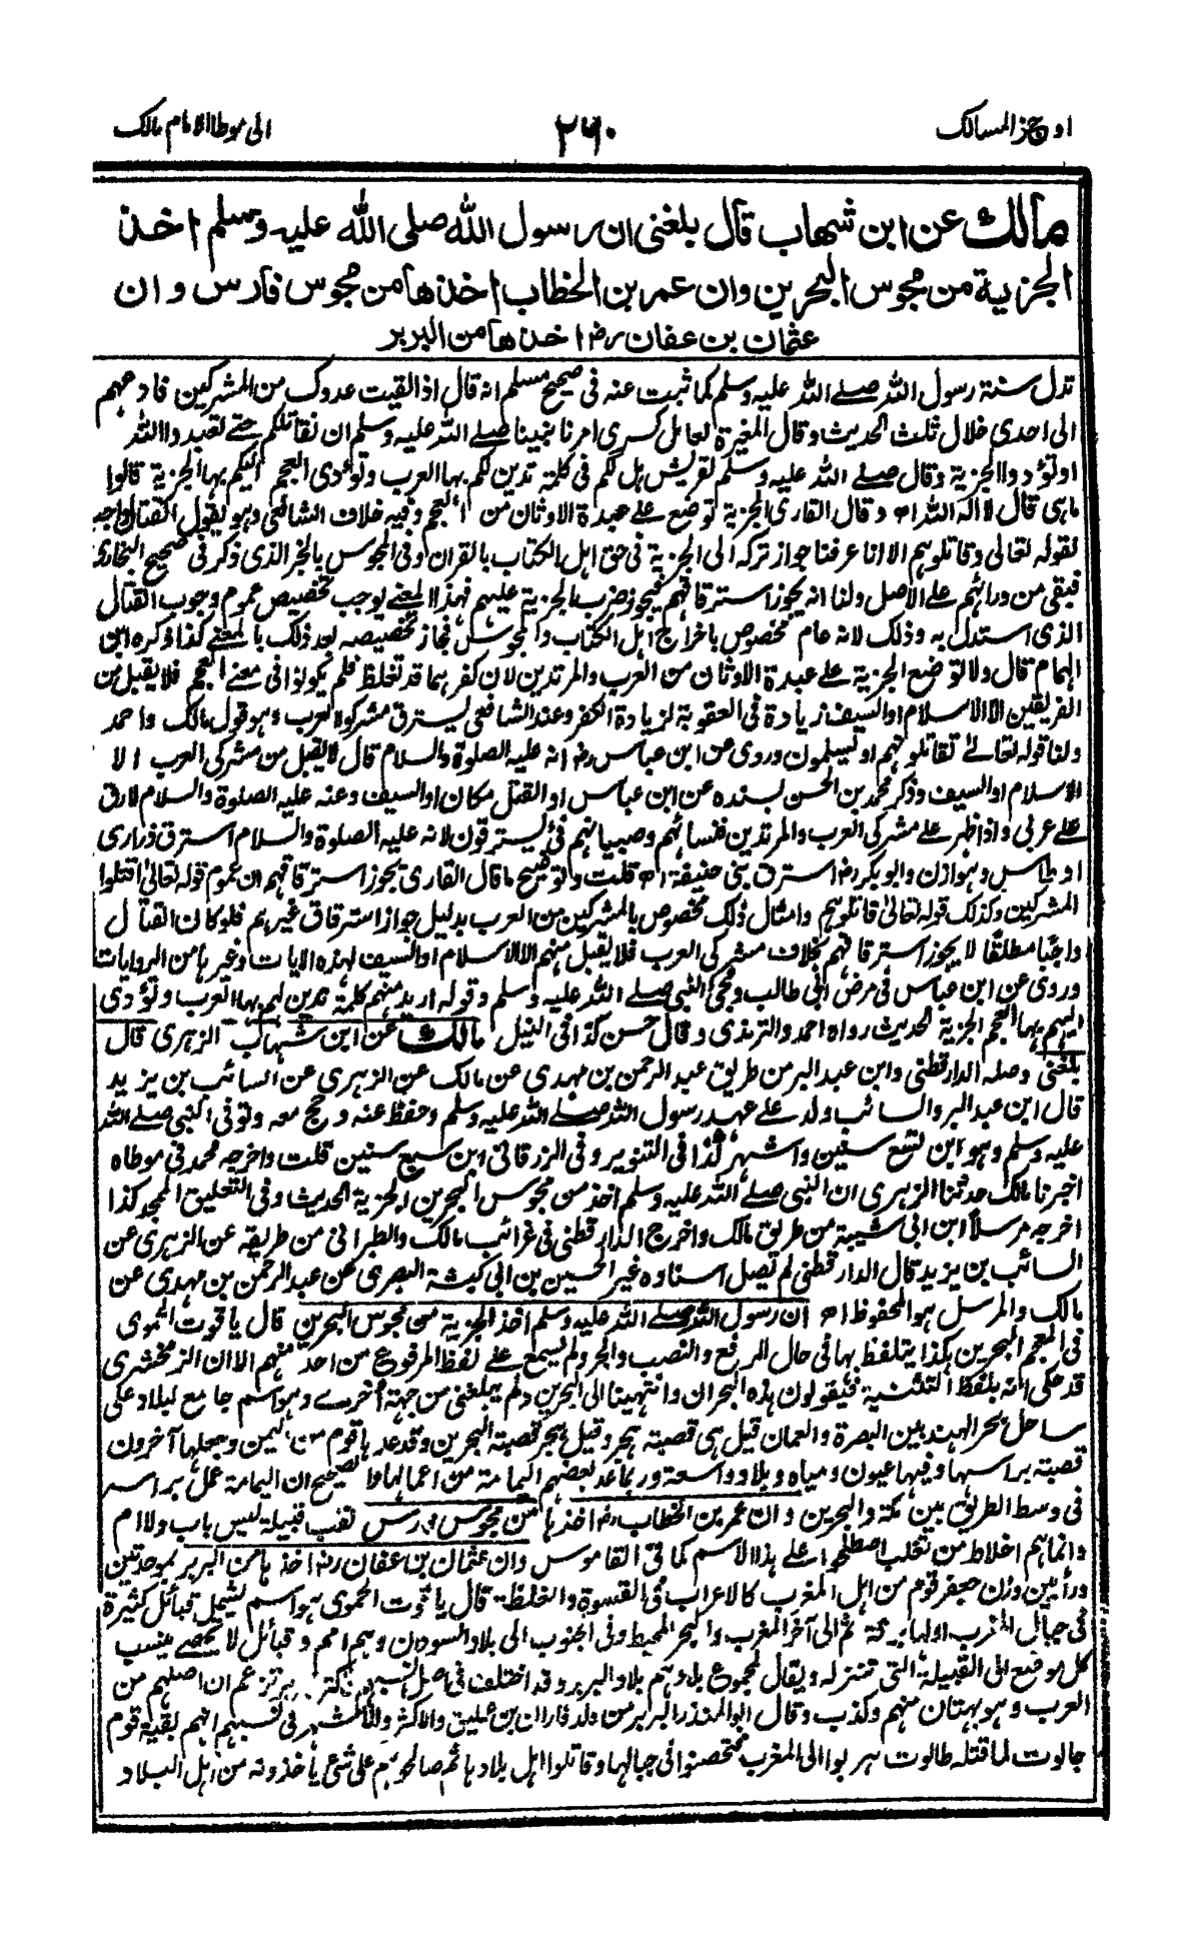 اوجز المسالك
٢٦٠
الى موطا الامام مالك
مالك عن ابن شهاب قال بلغنى ان رسول الله صلى الله عليه وسلم اخذ
الجزية من مجوس البحرين وان عمر بن الخطاب اخذها من مجوس فارس وان
عثمان بن عفان رض اخذها من البربر
تدل سنة رسول الله صلے الله عليه وسلم كما ثبت عنه فى صحيح مسلم انه قال اذا لقيت عدوك من المشركين فادعهم
الى احدى خلال ثلث الحديث وقال المغيرة لعامل كسرى امرنا نبينا صلے الله عليه وسلم ان نقاتلكم حتے تعبدوا الله
او تؤدوا الجزية وقال صلے الله عليه وسلم لقريش هل لكم فى كلمة تدين لكم بها العرب وتؤدى العجم اليكم بها الجزية قالوا
ماهى قال لا اله الا الله اھ وقال القارى الجزية توضع علے عبدة الاوثان من العجم وفيه خلاف الشافعى وهو يقول القتال واجب
لقوله تعالى وقاتلوهم الا انا عرفنا جواز تركه الى الجزية فى حق اهل الكتاب بالقران وفى المجوس بالخبر الذى ذكر فى صحيح البخارى
فبقى من ورائهم علے الاصل ولنا انه يجوز استرقاقهم فيجوز ضرب الجزية عليهم فهذا المعنے يوجب تخصيص عموم وجوب القتال
الذى استدل به وذلك لانه عام مخصوص باخراج اهل الكتاب والمجوس فجاز تخصيصه بعد ذلك بالمعنے كذا ذكره ابن
الهمام قال ولا توضع الجزية علے عبدة الاوثان من العرب والمرتدين لان كفرهما قد تغلظ فلم يكونوا فى معنے العجم فلا يقبل من
الفريقين الا الاسلام او السيف زيادة فى العقوبة لزيادة الكفر وعند الشافعى يسترق مشركو العرب وهو قول مالك واحمد
ولنا قوله تعالے تقاتلونهم او يسلمون وروى عن ابن عباس رض انه عليه الصلوة والسلام قال لا يقبل من مشركى العرب الا
الاسلام او السيف وذكر محمد بن الحسن بسنده عن ابن عباس او القتل مكان او السيف وعنه عليه الصلوة والسلام لارق
علے عربى واذا ظهر علے مشركى العرب والمرتدين فنسائهم وصبيانهم فئ يسترقون لانه عليه الصلوة والسلام استرق ذرارى
اوطاس وهوازن وابو بكر رض استرق بنى حنيفة اھ قلت وتوضيح ما قال القارى يجوز استرقاقهم ان عموم قوله تعالى اقتلوا
المشركين وكذلك قوله تعالى قاتلوهم وامثال ذلك مخصوص بالمشركين من العرب بدليل جواز استرقاق غيرهم فلو كان القتال
واجبا مطلقا لا يجوز استرقاقهم بخلاف مشركى العرب فلا يقبل منهم الا الاسلام او السيف لهذه الايات وغيرها من الروايات
وروى عن ابن عباس فى مرض ابى طالب ومجئ النبى صلے الله عليه وسلم وقوله اريد منهم كلمة تدين لهم بها العرب وتؤدى
اليهم بها العجم الجزية الحديث رواه احمد والترمذى وقال حسن كذا فى النيل مالك عن ابن شهاب الزهرى قال
بلغنى وصله الدارقطنى وابن عبد البر من طريق عبد الرحمن بن مهدى عن مالك عن الزهرى عن السائب بن يزيد
قال ابن عبد البر والسائب ولد علے عهد رسول الله صلے الله عليه وسلم وحفظ عنه وحج معه وتوفى النبى صلے الله
عليه وسلم وهو ابن تسع سنين واشهر كذا فى التنوير وفى الزرقانى ابن سبع سنين قلت واخرجه محمد فى موطاه
اخبرنا مالك حدثنا الزهرى ان النبى صلے الله عليه وسلم اخذ من مجوس البحرين الجزية الحديث وفى التعليق الممجد كذا
اخرجه مرسلا ابن ابى شيبة من طريق مالك واخرج الدارقطنى فى غرائب مالك والطبرانى من طريقه عن الزهرى عن
السائب بن يزيد قال الدارقطنى لم يصل اسناده غير الحسين بن ابى كبشة البصرى عن عبد الرحمن بن مهدى عن
مالك والمرسل هو المحفوظ اھ ان رسول الله صلے الله عليه وسلم اخذ الجزية من مجوس البحرين قال ياقوت الحموى
فى المعجم البحرين هكذا يتلفظ بها فى حال الرفع والنصب والجر ولم يسمع علے لفظ المرفوع من احد منهم الا ان الزمخشرى
قد حكى انه بلفظ التثنية فيقولون هذه البحران وانتهينا الى البحرين ولم يبلغنى من جهة اخرے وهو اسم جامع لبلاد على
ساحل بحر الهند بين البصرة والعمان قيل هى قصبة هجر وقيل هجر قصبة البحرين وقد عدها قوم من اليمن وجعلها آخرون
قصبة براسها وفيها عيون ومياه وبلاد واسعة وربما عد بعضهم اليمامة من اعمالها والصحيح ان اليمامة عمل براسه
فى وسط الطريق بين مكة والبحرين وان عمر بن الخطاب رض اخذها من مجوس فارس لقب قبيلة ليس باب ولا ام
وانما هم اخلاط من تغلب اصطلحوا علے هذا الاسم كما فى القاموس وان عثمان بن عفان رض اخذها من البربر بموحدتين
ورائين وزن جعفر قوم من اهل المغرب كالاعراب فى القسوة والغلظة قال ياقوت الحموى هو اسم يشمل قبائل كثيرة
فى جبال المغرب اولها برقة ثم الى آخر المغرب والبحر المحيط وفى الجنوب الى بلاد السودان وهم امم وقبائل لا يحصے ينسب
كل موضع الى القبيلة التى تنزله ويقال لمجموع بلادهم بلاد البربر وقد اختلف فى اصل نسبهم فاكثر البربر تزعم ان اصلهم من
العرب وهو بهتان منهم وكذب وقال ابو المنذر البربر من ولد فاران بن عمليق والاكثر والاشهر فى نسبهم انهم بقية قوم
جالوت لما قتله طالوت هربوا الى المغرب فتحصنوا فى جبالها وقاتلوا اهل بلادها ثم صالحوهم على شئ ياخذونه من اهل البلاد